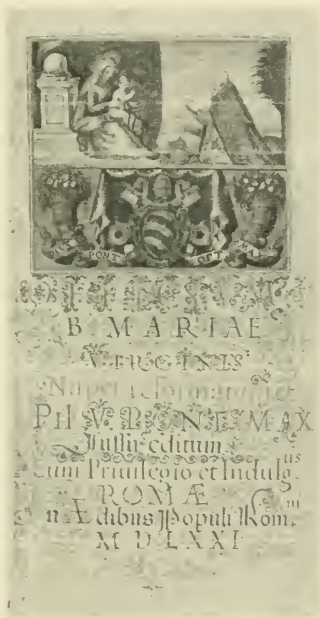 PONT OPT
B MARIAE
VIRGINIS
Nuper reformatum et
PII V. PONT. MAX
Jussu editum.
Cum Priuilegio et Indulg.us
ROMÆ
n Ædibus Populi Rom.
M D LXXI